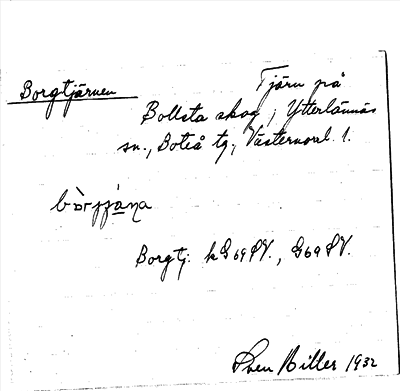 Borgtjärnen
Tjärn på
Bollsta skog, Ytterlännäs
sn., Boteå tg., Västernorrl. l.
Borgtj. k G69SV., G69SV.
Sven Biller 1932